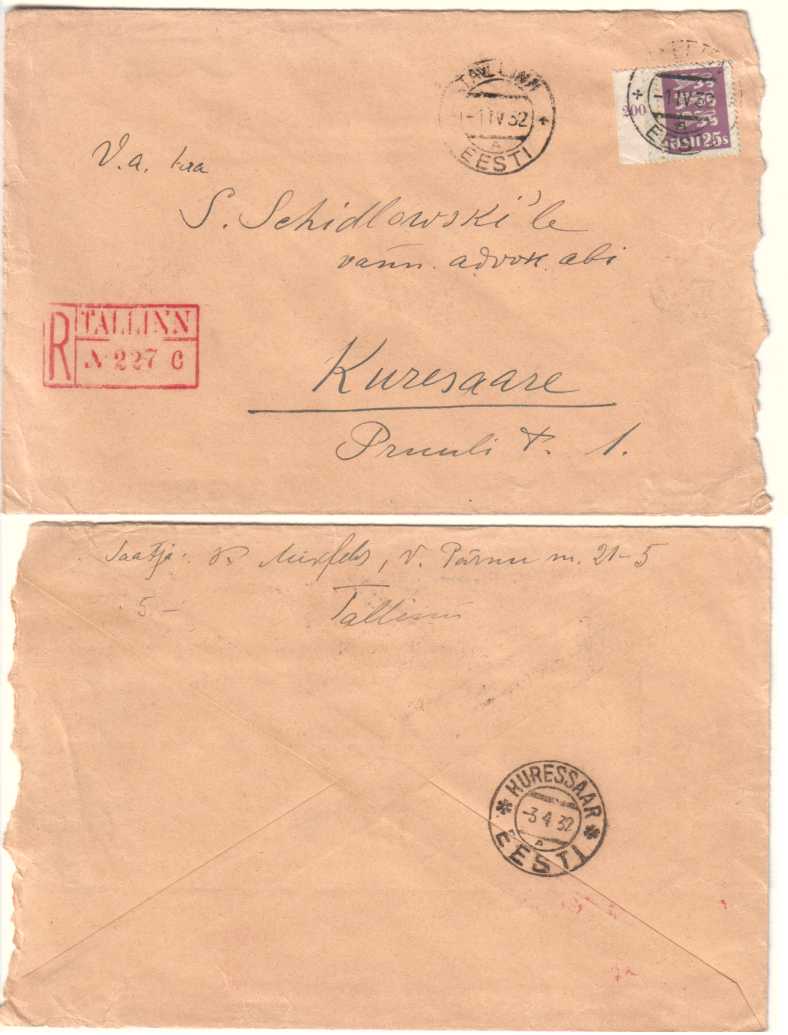 TALLINN
-1 IV 32
A
EESTI
-1 IV 32
A
EESTI
200
EESTI 25s
V.a. hra
S. Schidlowski'le
vann. advok. abi
R
TALLINN
№ 227 C
Kuresaare
Pruuli t. 1.
Saatja: V. Pärnu m. 21-5
5-
Tallinn
KURESSAAR
-3 4 32
A
EESTI